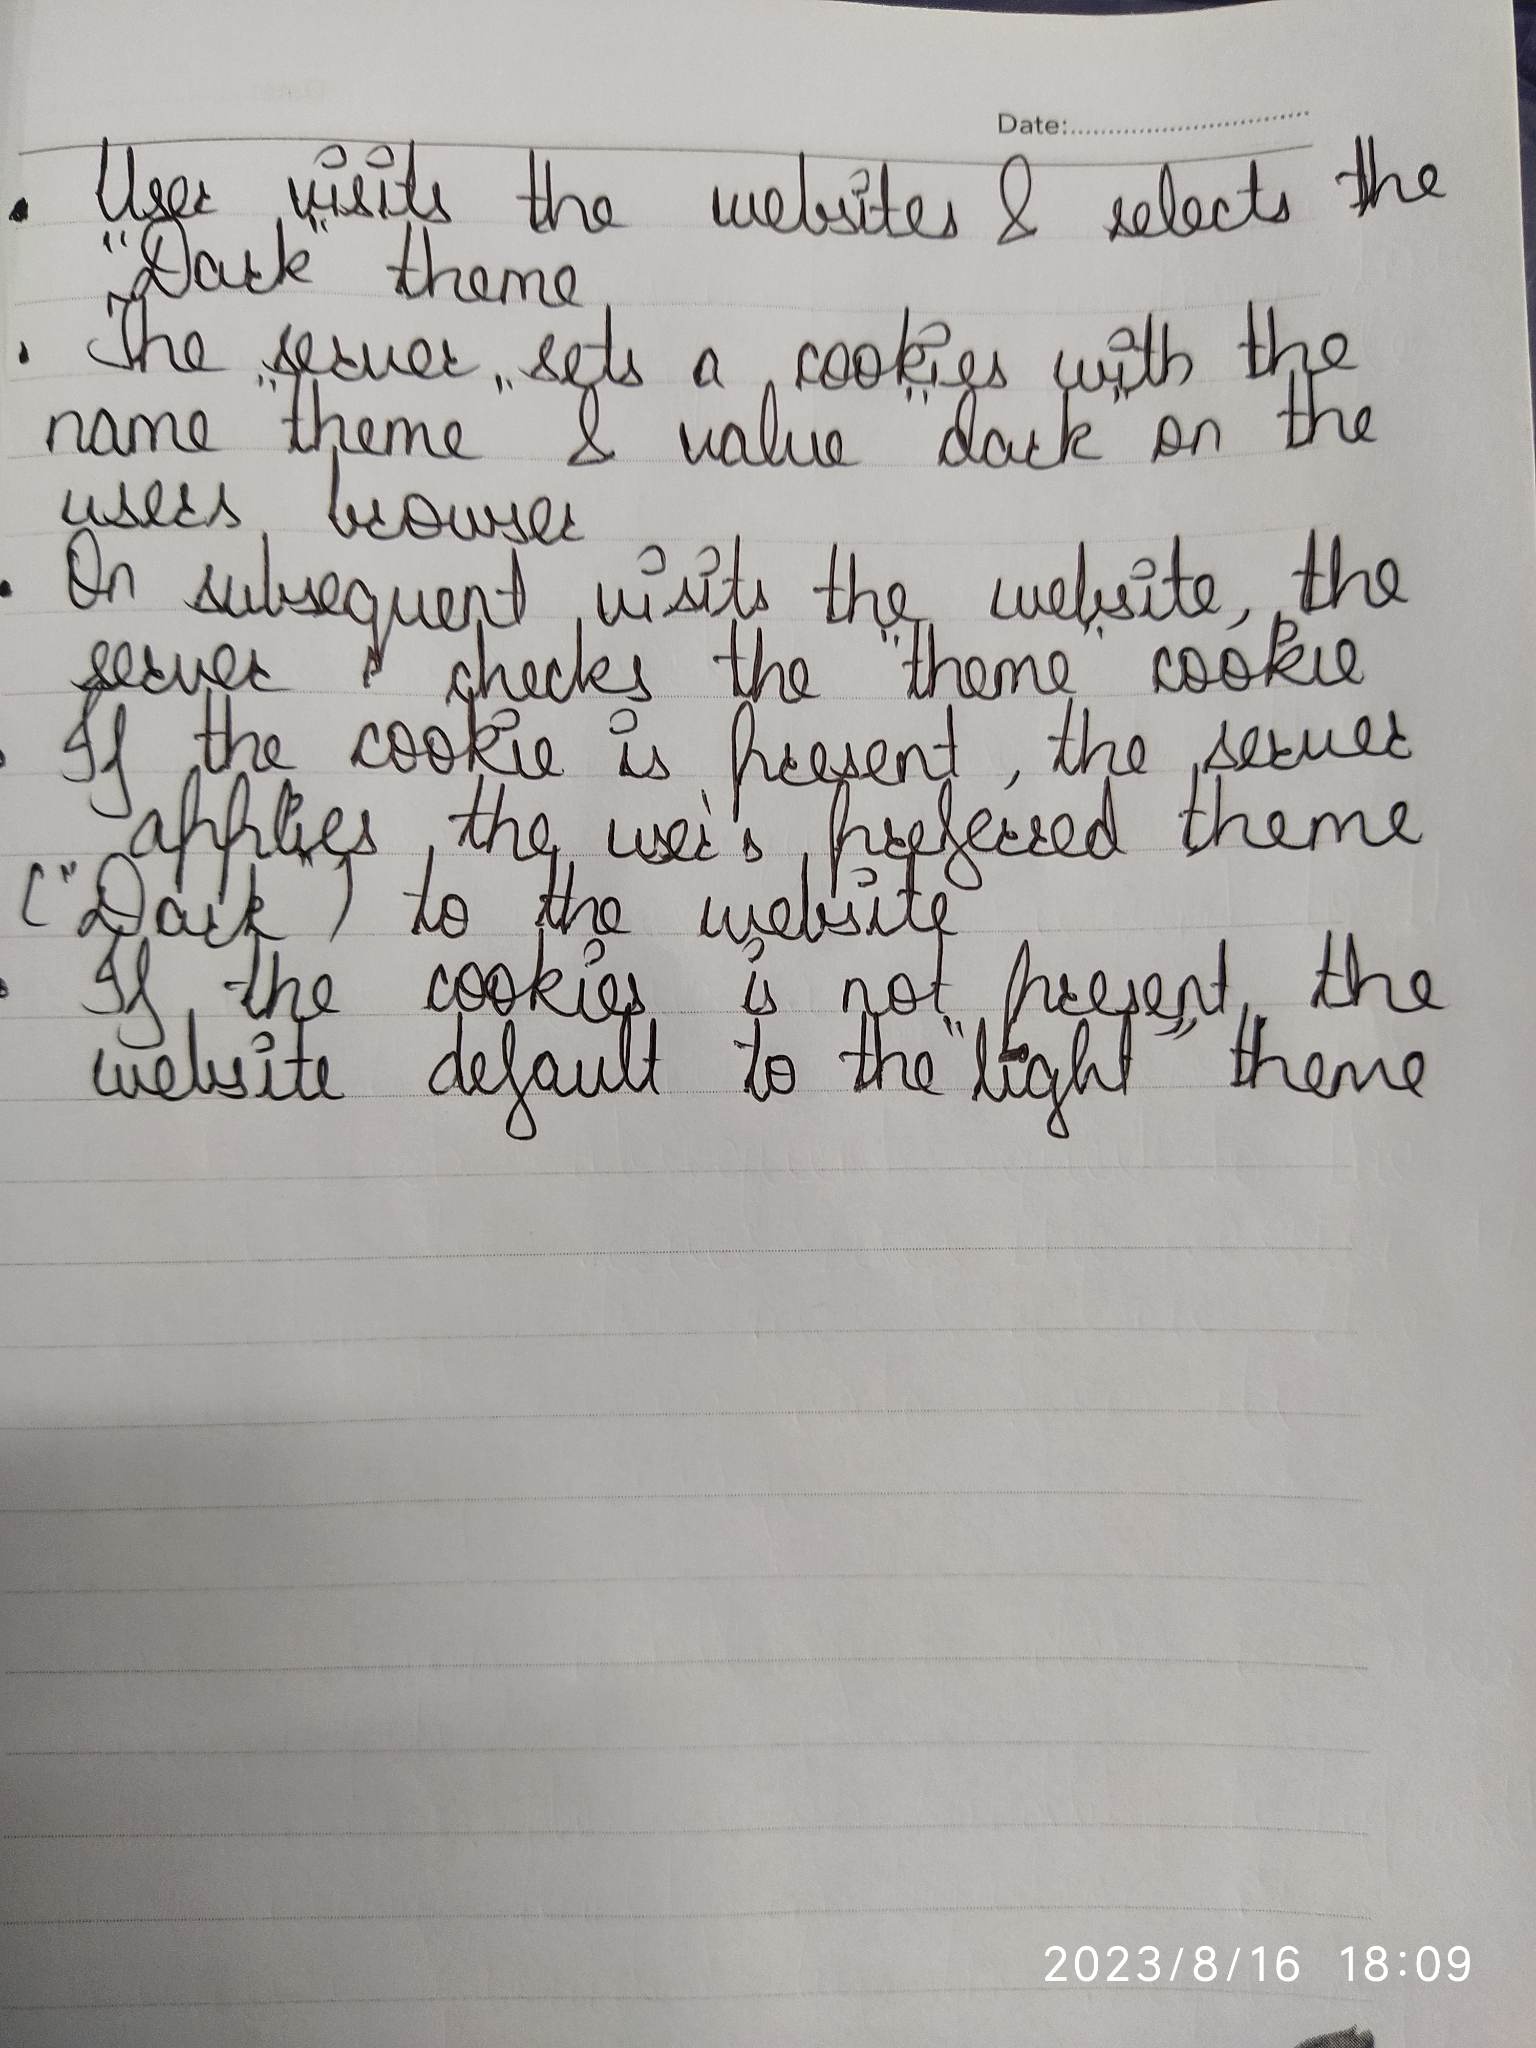 Date:
• User visits the websites & selects the
"Dark" theme
• The server sets a cookies with the
name "theme" & value "dark" on the
users browser
• On subsequent visits the website, the
server checks the "theme" cookie
• If the cookie is present, the server
applies the user's preferred theme
("Dark") to the website
• If the cookies is not present, the
website default to the "light" theme
2023/8/16 18:09